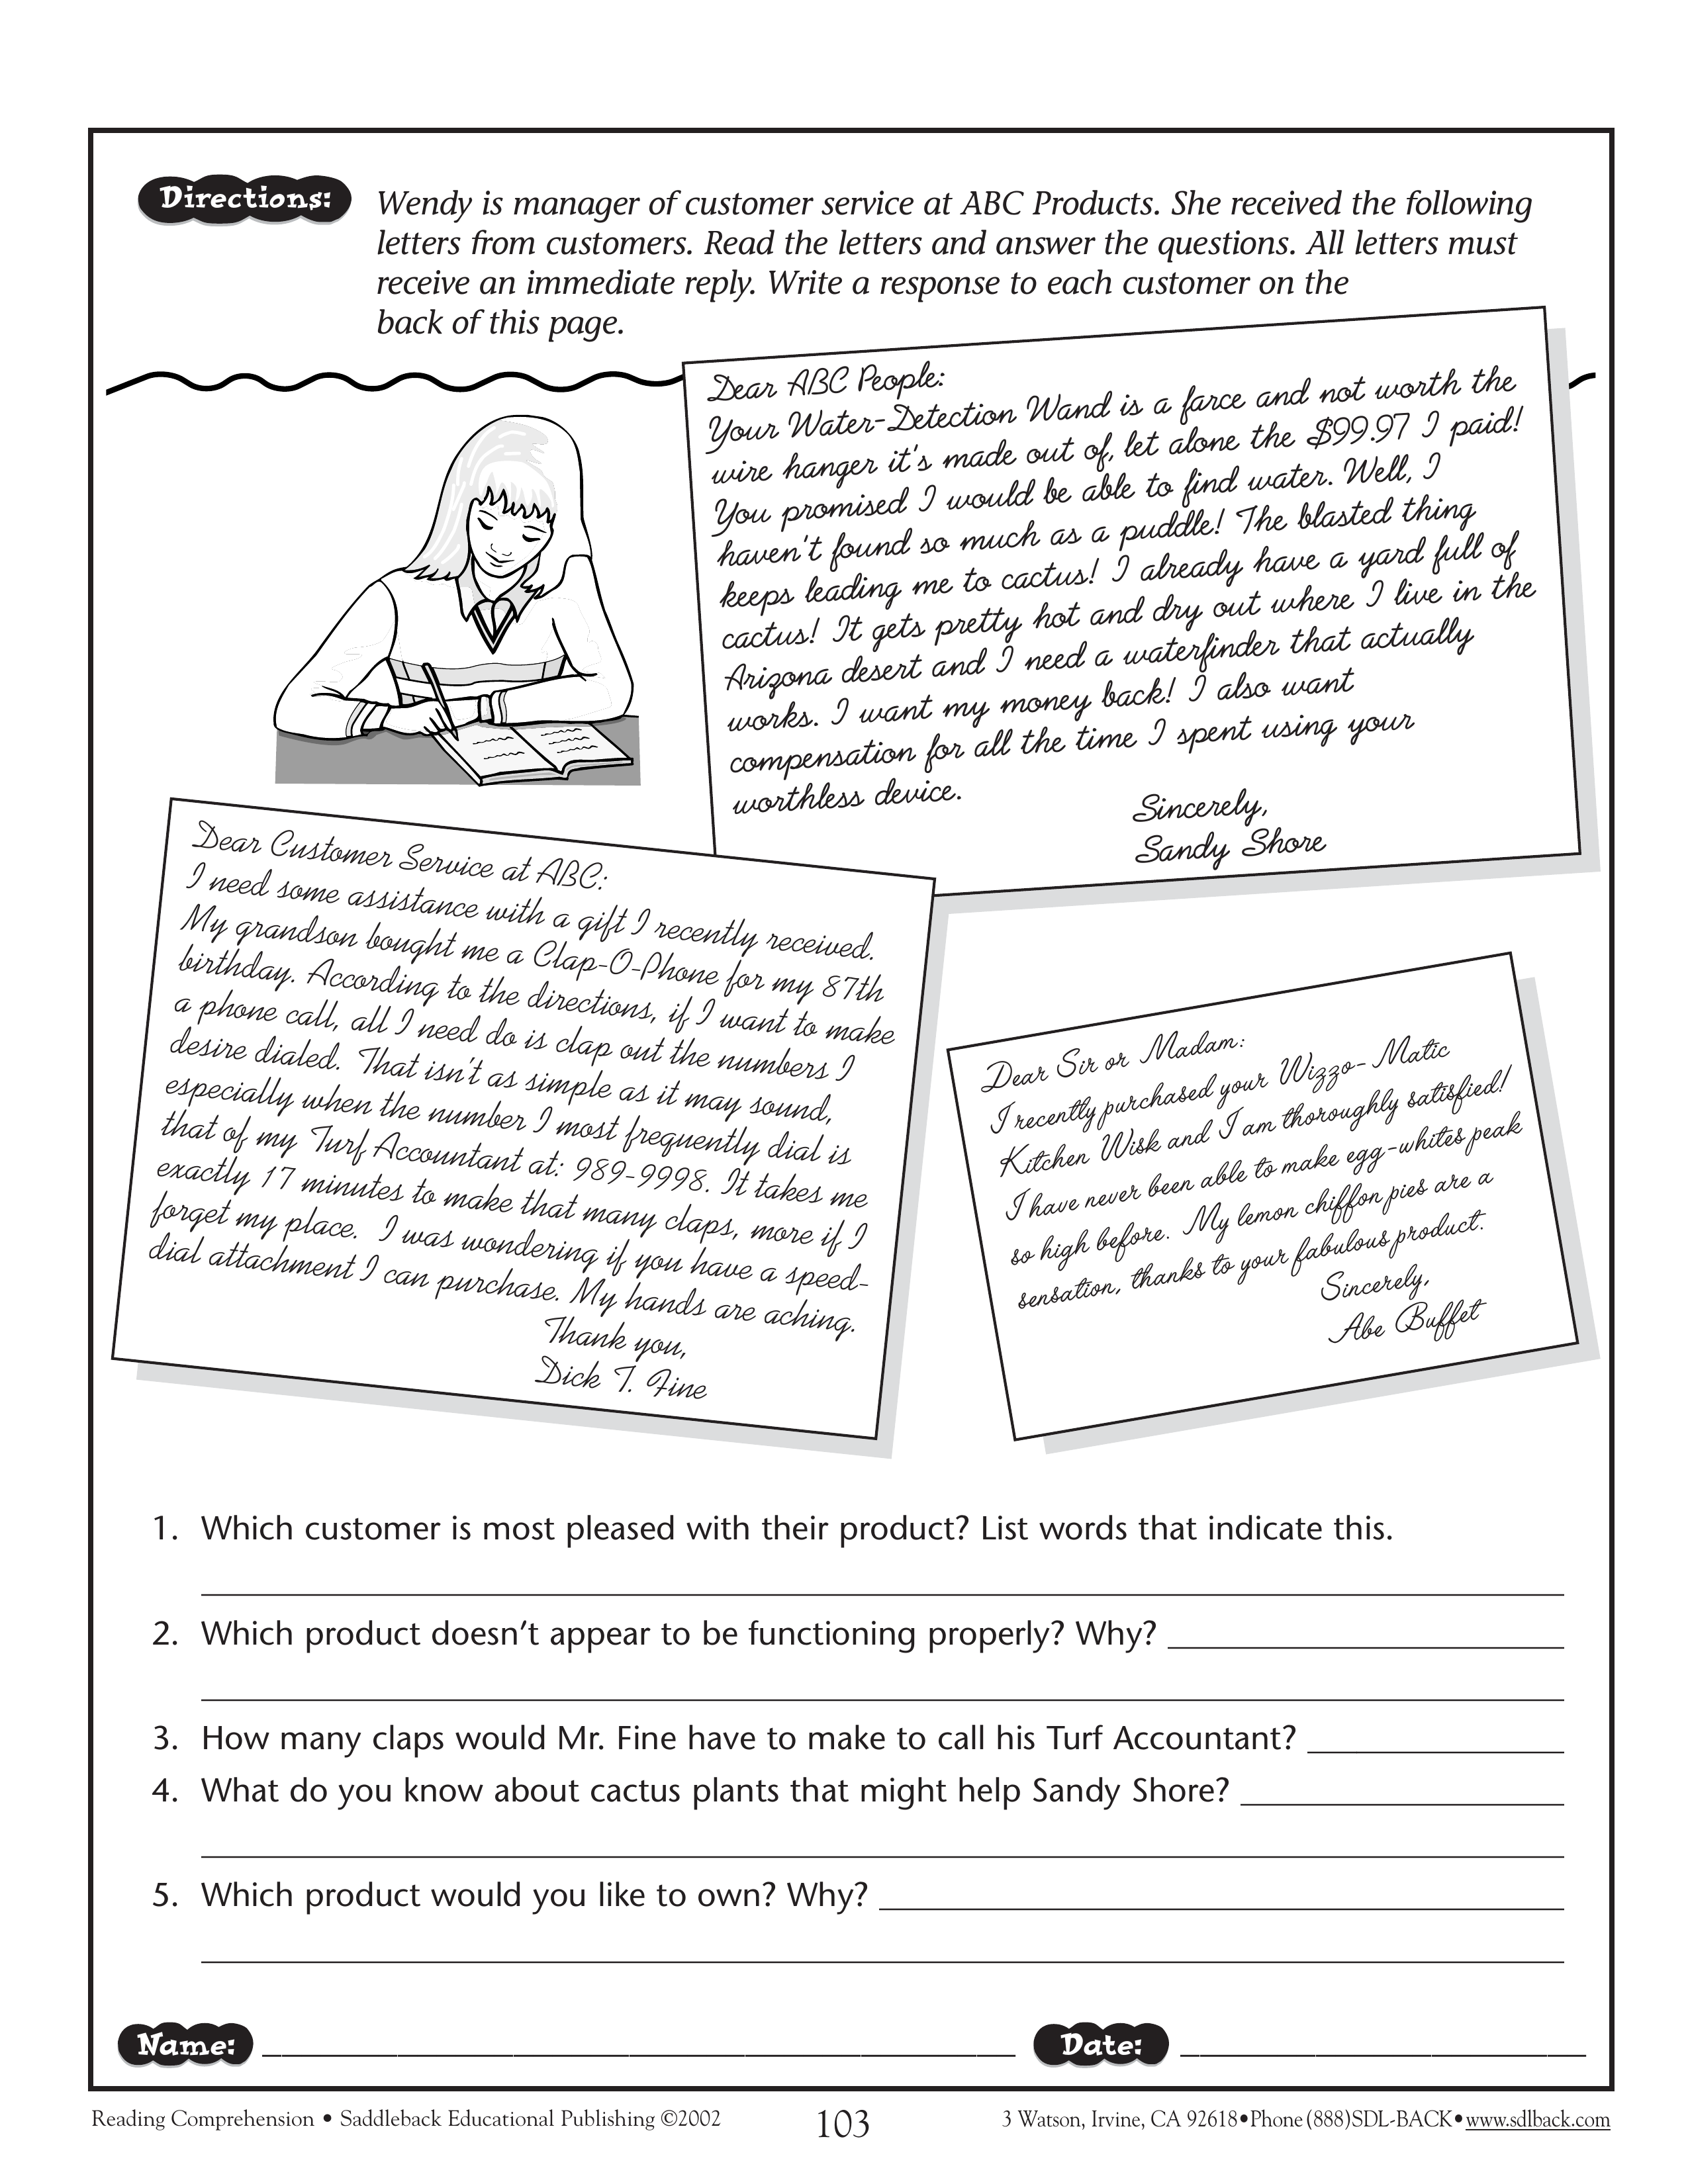 Directions:
Wendy is manager of customer service at ABC Products. She received the following
letters from customers. Read the letters and answer the questions. All letters must
receive an immediate reply. Write a response to each customer on the
back of this page.
Dear ABC People:
Your Water-Detection Wand is a farce and not worth the
wire hanger it's made out of, let alone the $99.97 I paid!
You promised I would be able to find water. Well, I
haven't found so much as a puddle! The blasted thing
keeps leading me to cactus! I already have a yard full of
cactus! It gets pretty hot and dry out where I live in the
Arizona desert and I need a waterfinder that actually
works. I want my money back! I also want
compensation for all the time I spent using your
worthless device.
Sincerely,
Sandy Shore
Dear Customer Service at ABC:
I need some assistance with a gift I recently received.
My grandson bought me a Clap-O-Phone for my 87th
birthday. According to the directions, if I want to make
a phone call, all I need do is clap out the numbers I
desire dialed. That isn't as simple as it may sound,
especially when the number I most frequently dial is
that of my Turf Accountant at: 989-9998. It takes me
exactly 17 minutes to make that many claps, more if I
forget my place. I was wondering if you have a speed-
dial attachment I can purchase. My hands are aching.
Thank you,
Dick T. Fine
Dear Sir or Madam:
I recently purchased your Wizzo-Matic
Kitchen Wisk and I am thoroughly satisfied!
I have never been able to make egg-whites peak
so high before. My lemon chiffon pies are a
sensation, thanks to your fabulous product.
Sincerely,
Abe Buffet
1. Which customer is most pleased with their product? List words that indicate this.
2. Which product doesn't appear to be functioning properly? Why?
3. How many claps would Mr. Fine have to make to call his Turf Accountant?
4. What do you know about cactus plants that might help Sandy Shore?
5. Which product would you like to own? Why?
Name:
Date:
Reading Comprehension • Saddleback Educational Publishing ©2002
103
3 Watson, Irvine, CA 92618•Phone (888)SDL-BACK•www.sdlback.com